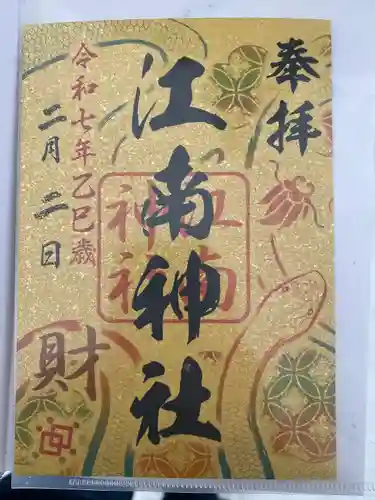 奉拝
江南神社
江南
神社
令和七年乙巳歳
二月二日
財